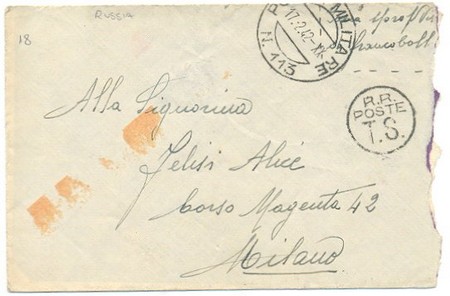 RUSSIA
18
P. MILITARE
17.2.42.XX
N. 113
sprovv
francoboll
R.R.
POSTE
T.S.
Alla Signorina
Felisi Alice
Corso Magenta 42
Milano